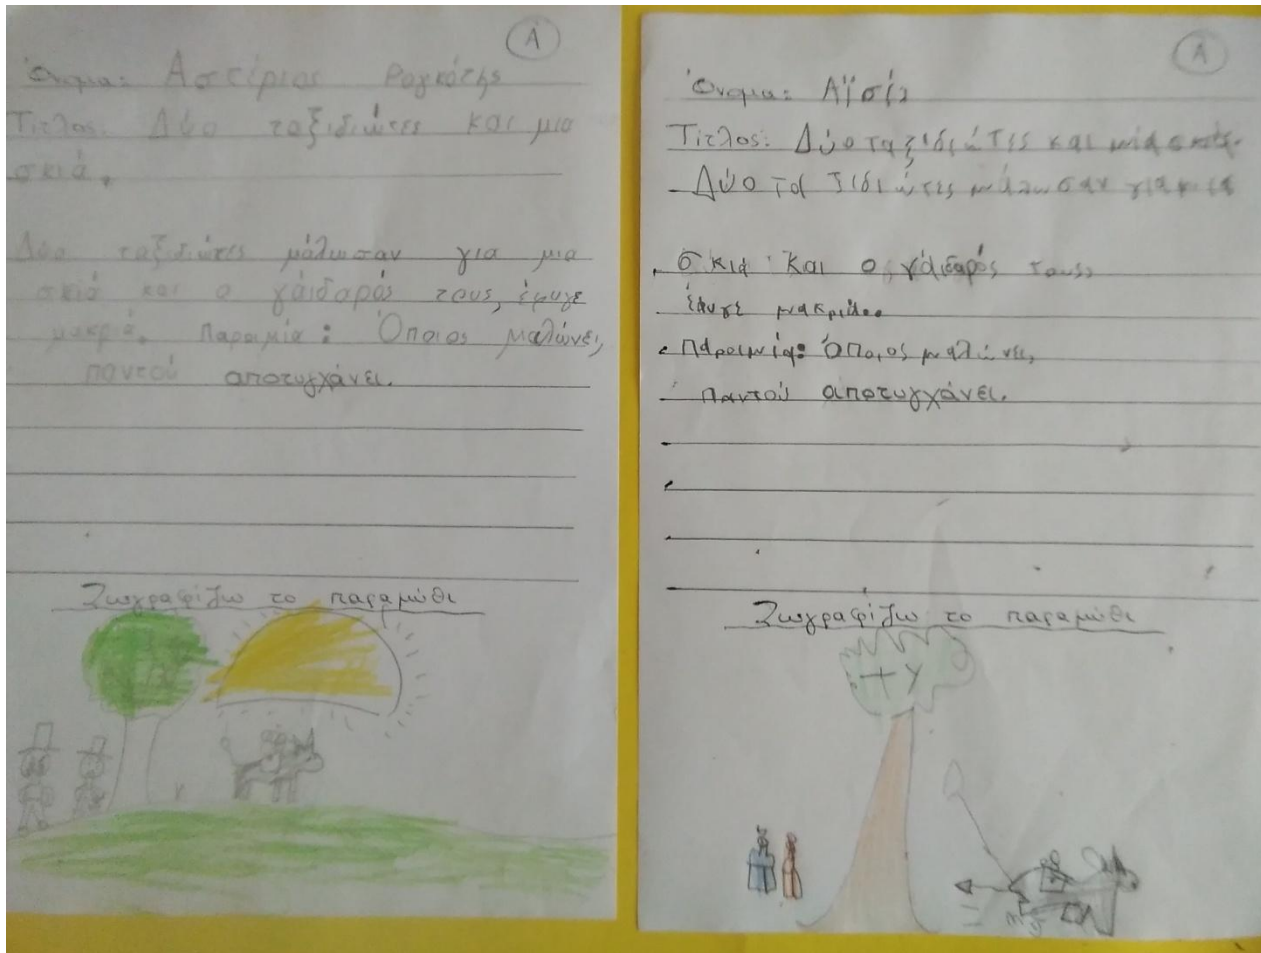 Α
Όνομα: Αστέριος Ρογκότης
Τίτλος: Δύο ταξιδιώτες και μια
σκιά.
Δύο ταξιδιώτες μάλωσαν για μια
σκιά και ο γάιδαρός τους, έφυγε
μακριά. Παροιμία: Όποιος μαλώνει,
παντού αποτυγχάνει.
Ζωγραφίζω το παραμύθι
Α
Όνομα: Αϊσέ
Τίτλος: Δύο ταξιδιώτες και μιά σκιά.
Δύο ταξιδιώτες μάλωσαν για μια
σκιά και ο γάιδαρός τους,
έφυγε μακριά.
Παροιμία: Όποιος μαλώνει,
παντού αποτυγχάνει.
Ζωγραφίζω το παραμύθι